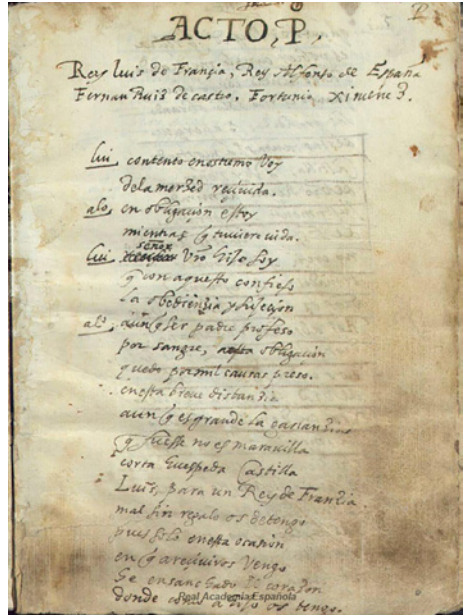 ACTO, P,
Rey luis de Françia, Rey Alfonso de España
Fernan Ruiz de castro. Fortunio Ximenez.
lui, contento en estremo Voy
dela merzed reçiuida.
alo, en obligaçion estoy
mientras q tuuiere uida.
señor
lui, Vro Hijo soy
q con aquesto confieso
la obediençia y sujeçion
alo, aunq ser padre profeso
por sangre, obligaçion
quedo por mil causas preso.
en esta breue distançia
aunq es grande la
q fuesse no es marauilla
corta Castilla
Luis, para un Rey de Françia.
mal sin regalo os detengo
pues solo en esta ocasion
en q a reçiuiros Vengo
Se ensanchado corazon
donde como a hijo os tengo.
Real Academia Española